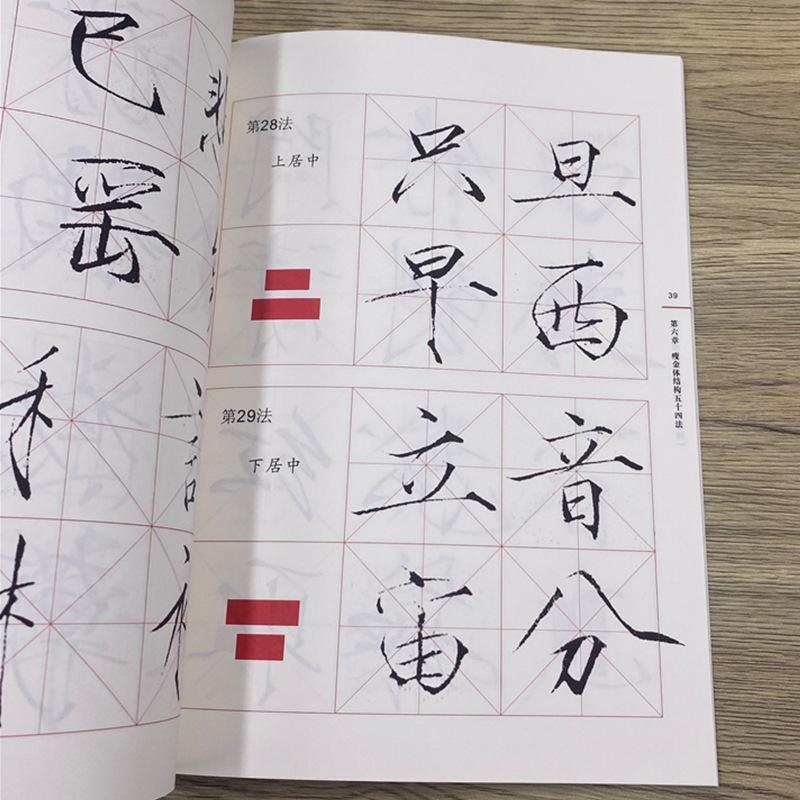 第28法
上居中
只 旦
早 酉
第29法
下居中
立 音
宙 分
39
第六章 瘦金体结构五十四法